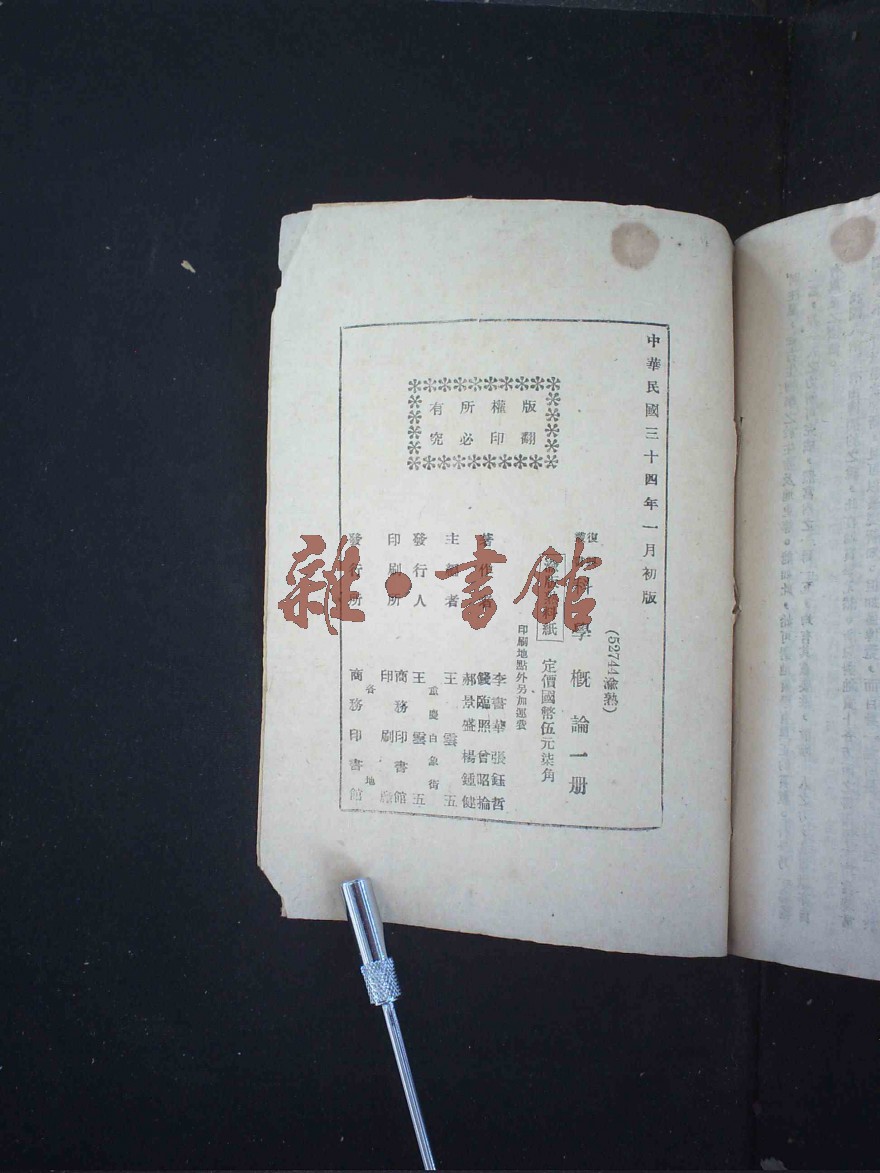 中華民國三十四年一月初版
(52741渝熟)
科學概論一册
定價國幣伍元柒角
印刷地點外另加運費
版權所有
翻印必究
著作者
李書華 張鈺哲
錢臨照 曾昭掄
郝景盛 楊鍾健
主編者 王雲五
重慶白象街
發行人 王雲五
印刷所 商務印書館
印刷廠
各地
發行所 商務印書館
雜·書館